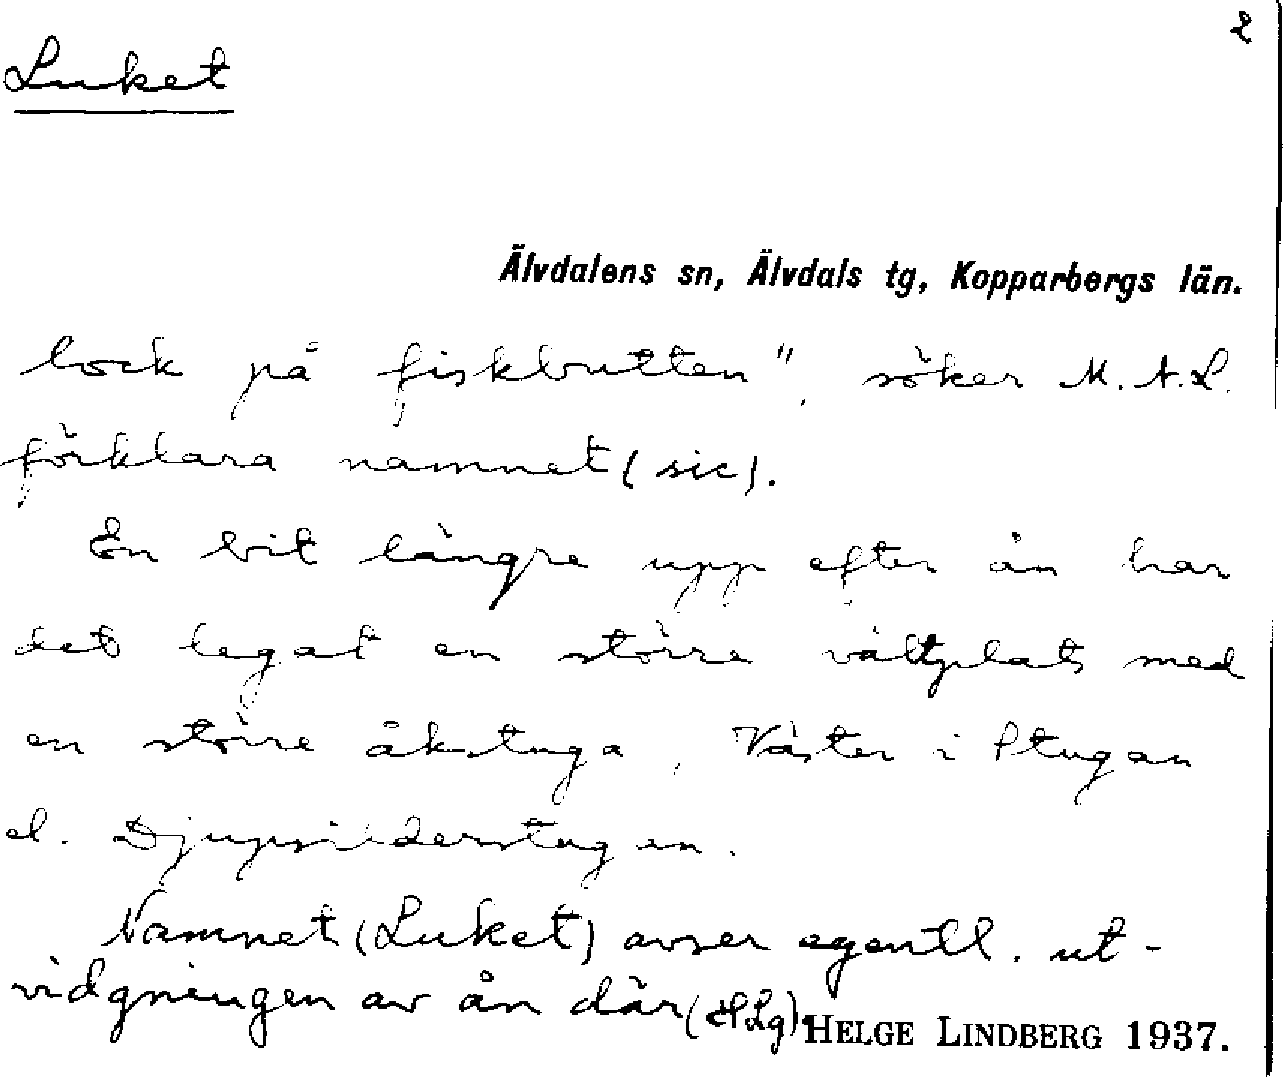 2
Luket
Älvdalens sn, Älvdals tg, Kopparbergs län.
lock på fiskbutten", söker M. A. L.
förklara namnet (sic).
En bit längre upp efter ån har
det legat en större vältplats med
en större åkstuga, Väster i Stugan
el. Djupsilderstugan.
Namnet (Luket) avser egentl. ut-
vidgningen av ån där (HLg).
HELGE LINDBERG 1937.